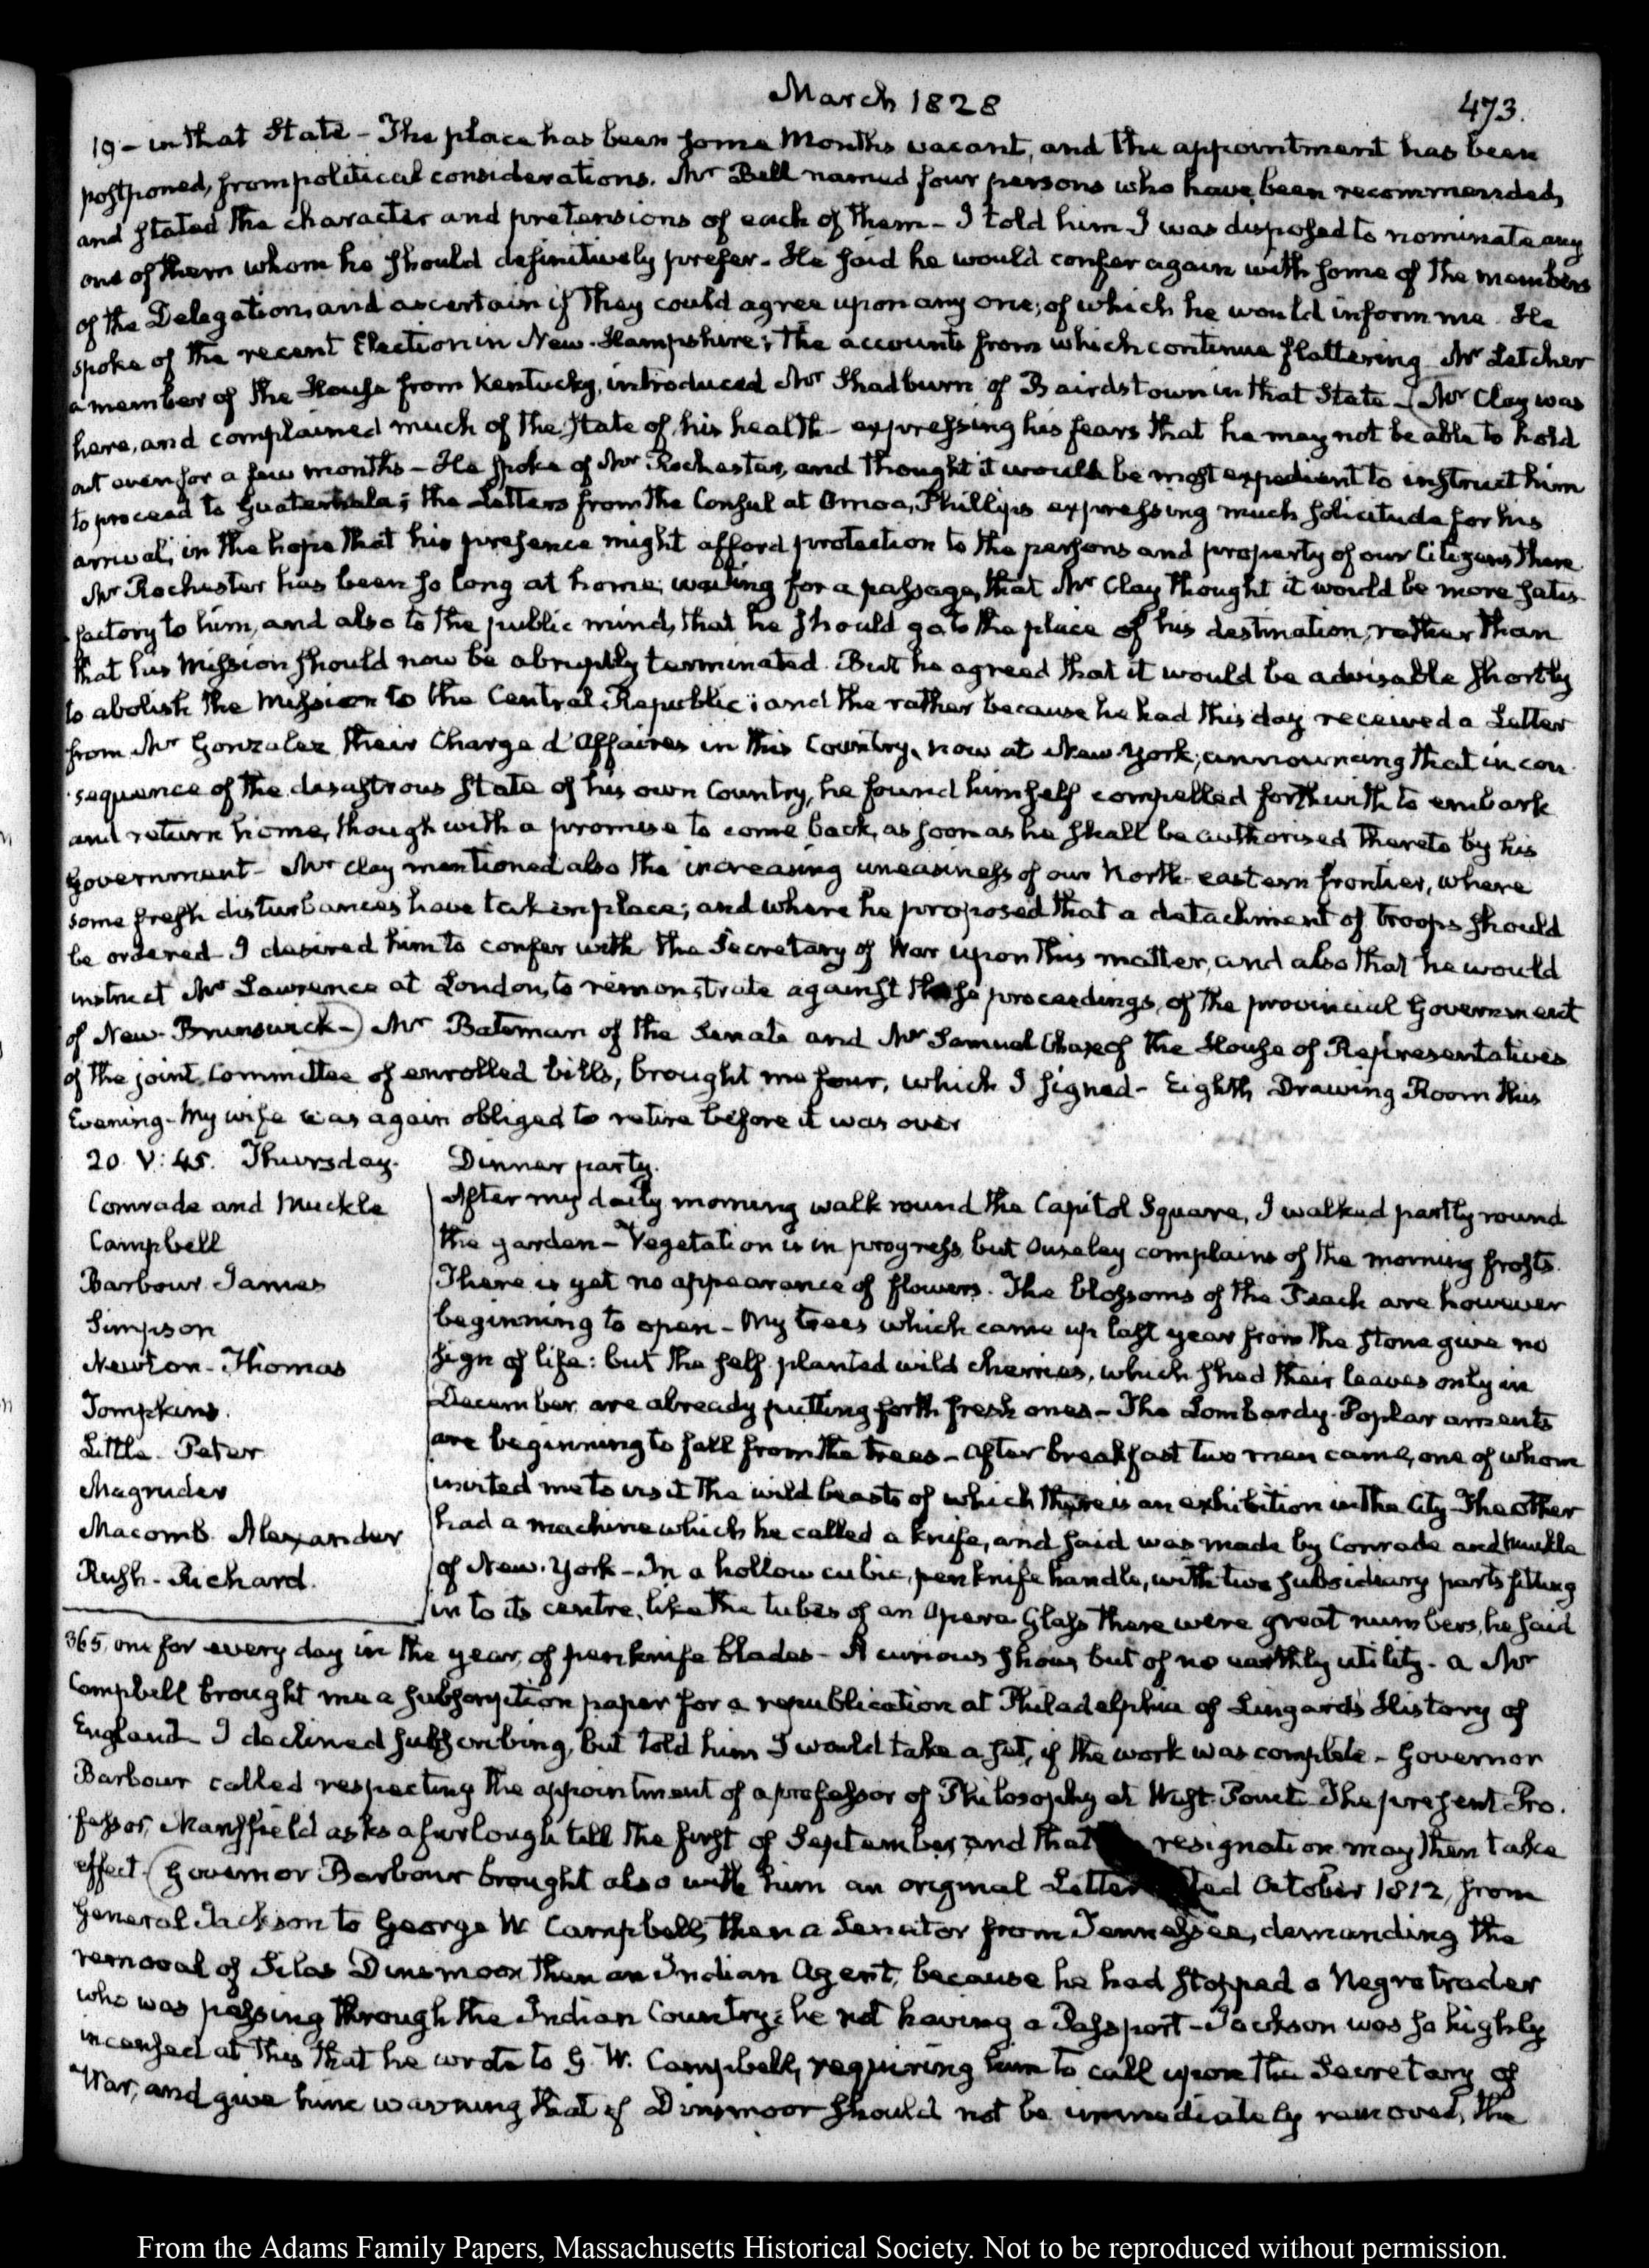 March 1828
473.
19 - in that State - The place has been some Months vacant, and the appointment has been
postponed, from political considerations. Mr Bell named four persons who have been recommended,
and stated the character and pretensions of each of them - I told him I was disposed to nominate any
one of them whom he should definitively prefer. He said he would confer again with some of the members
of the Delegation, and ascertain if they could agree upon any one; of which he would inform me. He
spoke of the recent Election in New-Hampshire; the accounts from which continue flattering. Mr Letcher
a member of the House from Kentucky, introduced Mr Shadburn of Bairdstown in that State - (Mr Clay was
here, and complained much of the state of his health - expressing his fears that he may not be able to hold
out even for a few months - He spoke of Mr Rochester, and thought it would be most expedient to instruct him
to proceed to Guatemala; the Letters from the Consul at Omoa, Phillips expressing much solicitude for his
arrival, in the hope that his presence might afford protection to the persons and property of our Citizens there
Mr Rochester has been so long at home, waiting for a passage, that Mr Clay thought it would be more satis-
factory to him, and also to the public mind, that he should go to the place of his destination, rather than
that his Mission should now be abruptly terminated. But he agreed that it would be advisable shortly
to abolish the Mission to the Central Republic; and the rather because he had this day received a Letter
from Mr Gonzalez their Charge d'Affaires in this Country, now at New-York, announcing that in con-
sequence of the disastrous state of his own Country, he found himself compelled forthwith to embark
and return home, though with a promise to come back, as soon as he shall be authorised thereto by his
Government - Mr Clay mentioned also the increasing uneasiness of our North-eastern frontier, where
some fresh disturbances have taken place; and where he proposed that a detachment of troops should
be ordered - I desired him to confer with the Secretary of War upon this matter, and also that he would
instruct Mr Lawrence at London, to remonstrate against these proceedings, of the provincial Government
of New-Brunswick -) Mr Bateman of the Senate and Mr Samuel Chase of the House of Representatives
of the joint Committee of enrolled bills, brought me four, which I signed - Eighth Drawing Room this
Evening - My wife was again obliged to retire before it was over
20. V: 45. Thursday. Dinner party.
Conrade and Muckle
Campbell
Barbour. James
Simpson
Newton - Thomas
Tompkins.
Little - Peter
Magruder
Macomb. Alexander
Rush - Richard.
After my daily morning walk round the Capitol Square, I walked partly round
the garden - Vegetation is in progress, but Ouseley complains of the morning frosts.
There is yet no appearance of flowers. The blossoms of the Peach are however
beginning to open - My trees which came up last year from the stone give no
sign of life: but the self-planted wild cherries, which shed their leaves only in
December, are already putting forth fresh ones - The Lombardy-Poplar aments
are beginning to fall from the trees - After breakfast two men came, one of whom
invited me to visit the wild beasts of which there is an exhibition in the City - The other
had a machine which he called a knife, and said was made by Conrade and Muckle
of New-York - In a hollow cubic, penknife handle, with two subsidiary parts fitting
in to its centre, like the tubes of an Opera Glass there were great numbers, he said
365, one for every day in the year, of penknife blades - A curious show, but of no earthly utility. a Mr
Campbell brought me a subscription paper for a republication at Philadelphia of Lingard's History of
England - I declined subscribing, but told him I would take a set, if the work was complete - Governor
Barbour called respecting the appointment of a professor of Philosophy at West-Point - The present Pro-
fessor, Mansfield asks a furlough till the first of September, and that resignation may then take
effect. (Governor Barbour brought also with him an original Letter October 1812, from
General Jackson to George W. Campbell, then a Senator from Tennessee, demanding the
removal of Silas Dinsmoor then an Indian Agent, because he had stopped a Negro trader
who was passing through the Indian Country; he not having a Passport - Jackson was so highly
incensed at this that he wrote to G. W. Campbell, requiring him to call upon the Secretary of
War, and give him warning that if Dinsmoor should not be immediately removed, the
From the Adams Family Papers, Massachusetts Historical Society. Not to be reproduced without permission.